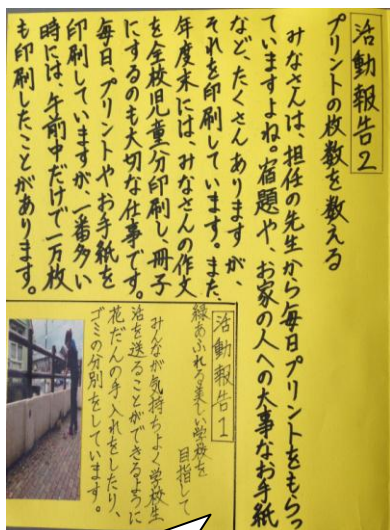 活動報告2
プリントの枚数を数える
みなさんは、担任の先生から毎日プリントをもらっ
ていますよね。宿題や、お家の人への大事なお手紙
など、たくさんありますが、
それを印刷しています。また、
年度末には、みなさんの作文
を全校児童分印刷し、冊子
にするのも大切な仕事です。
毎日、プリントやお手紙を
印刷していますが、一番多い
時には、午前中だけで一万枚
も印刷したことがあります。
活動報告1
緑あふれる美しい学校を
目指して
みんなが気持ちよく学校生
活を送ることができるように
花だんの手入れをしたり、
ゴミの分別をしています。